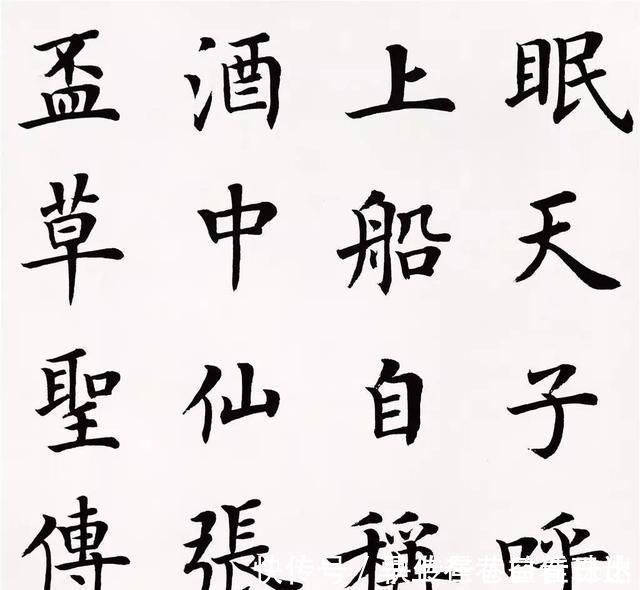 眠天子呼
上船自稱
酒中仙張
盃草聖傳
快传号